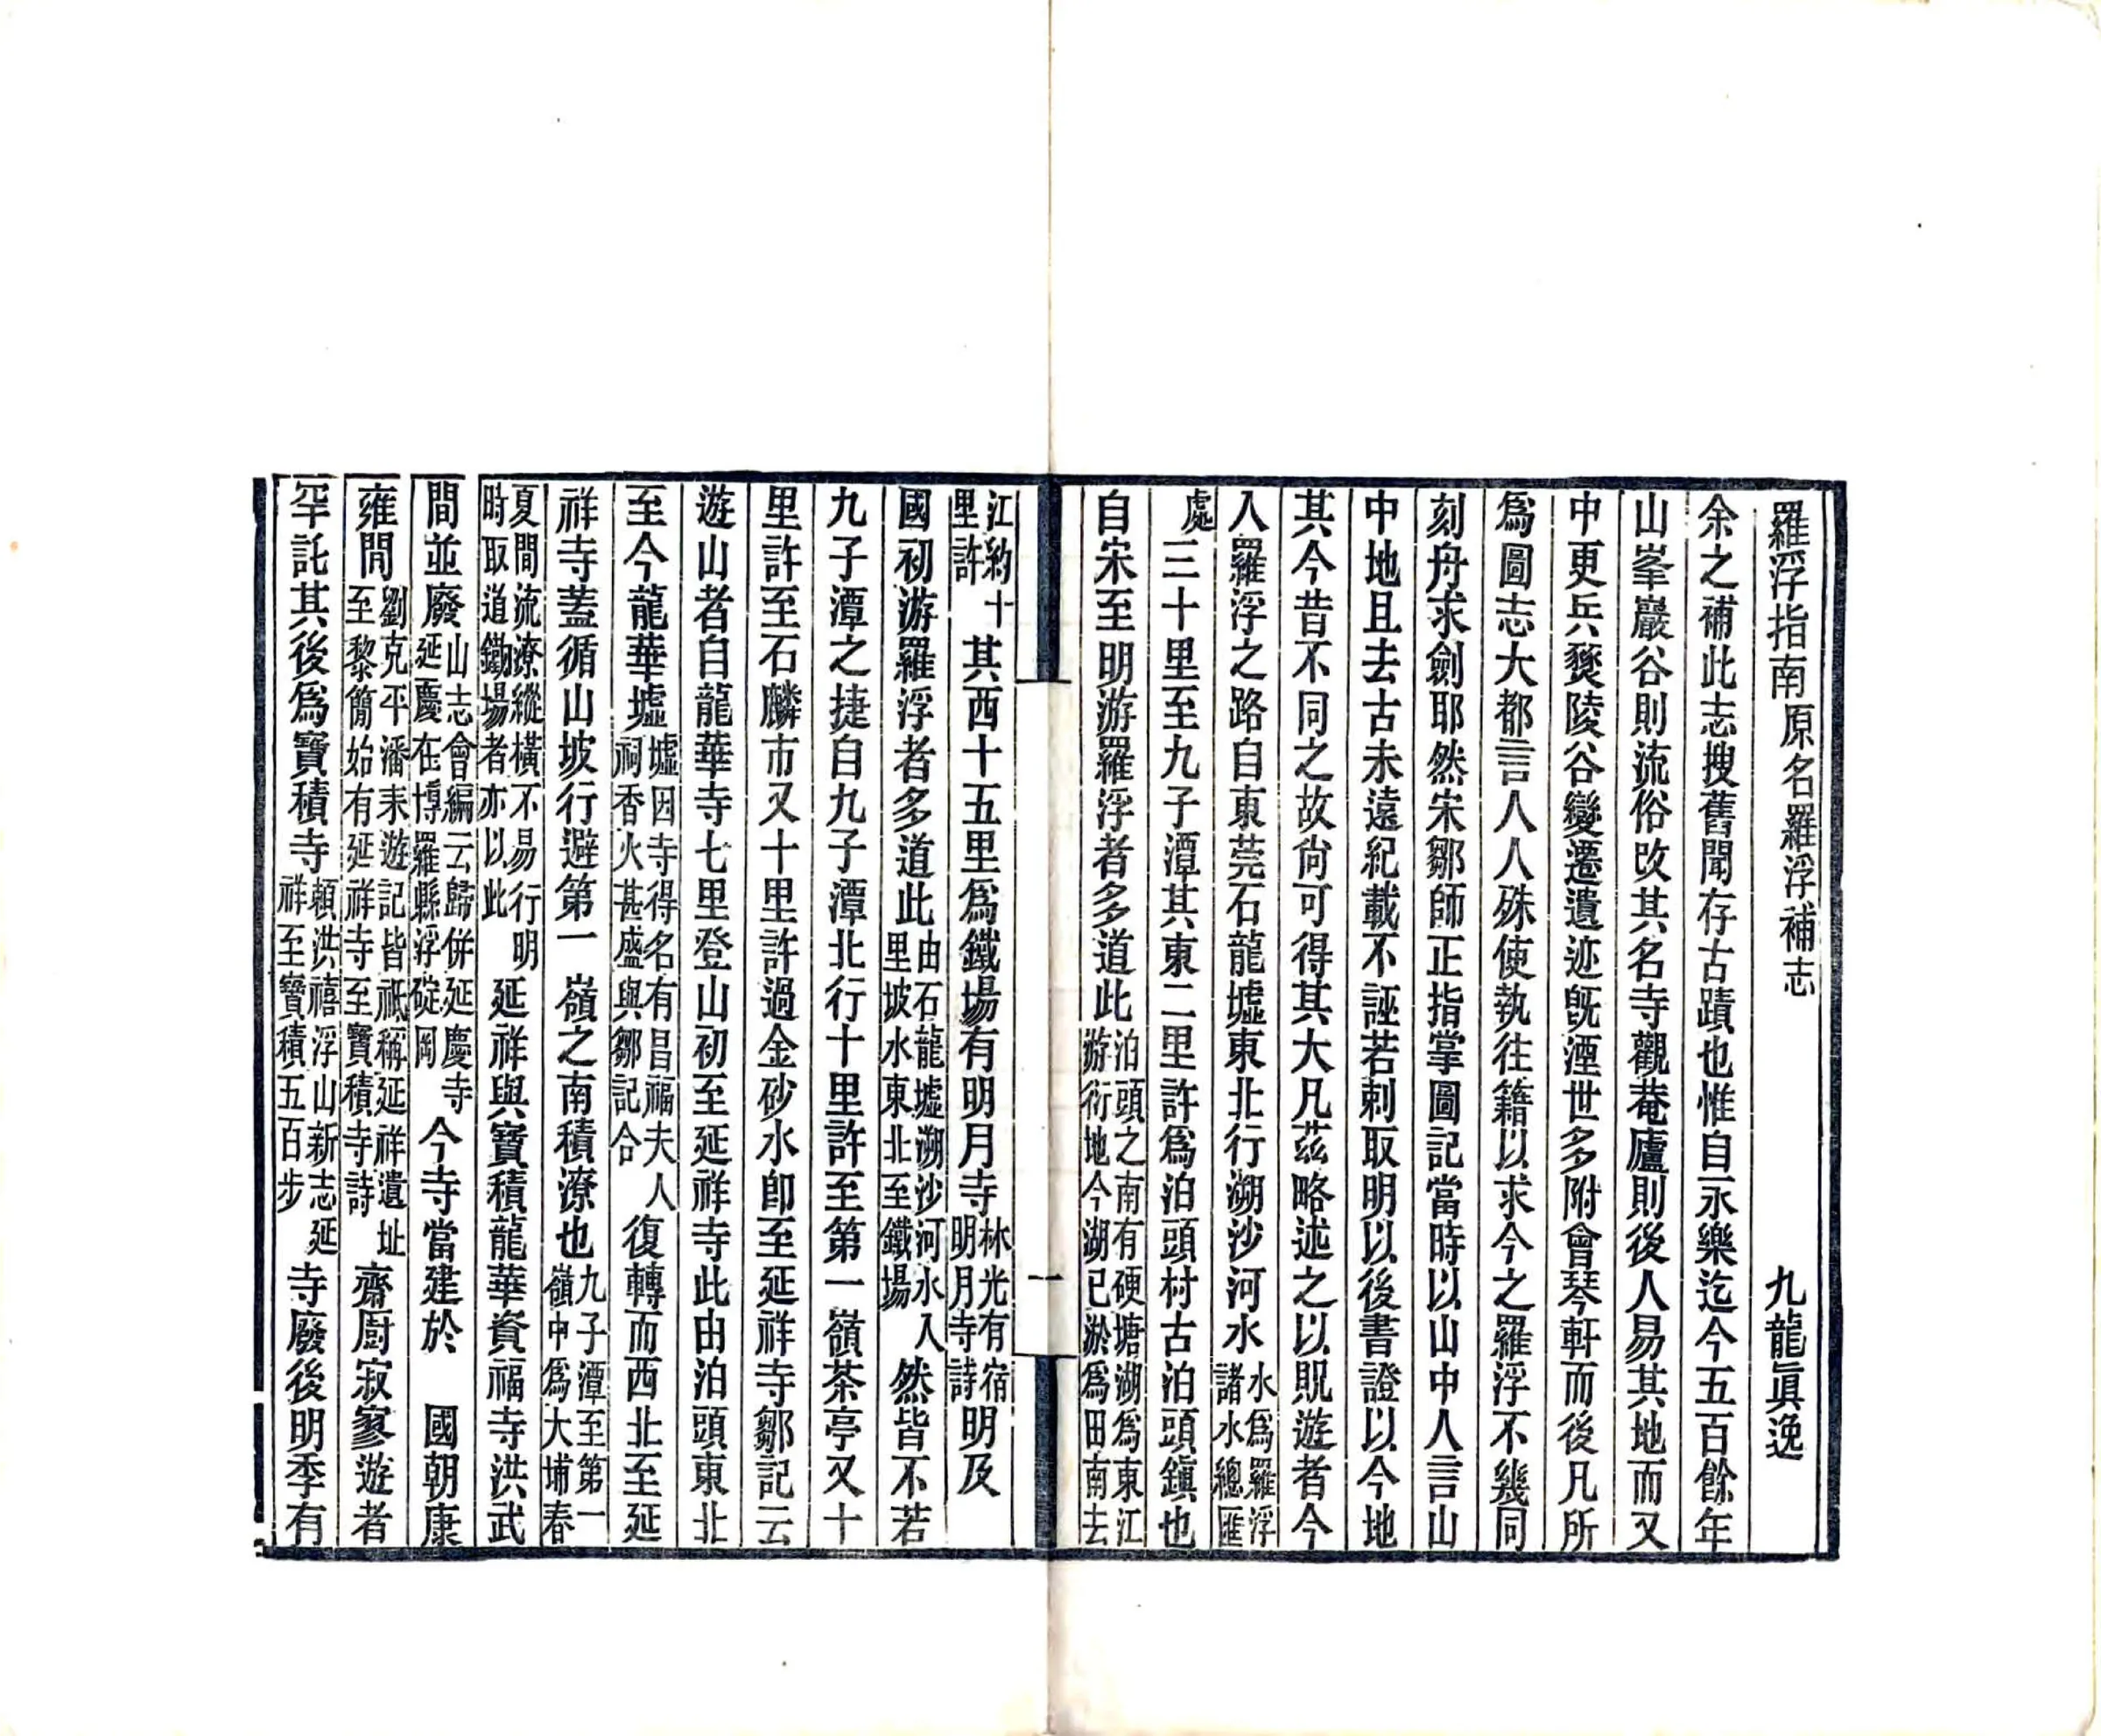 羅浮指南原名羅浮補志　九龍眞逸
余之補此志搜舊聞存古蹟也惟自永樂迄今五百餘年
山峯巖谷則流俗改其名寺觀菴廬則後人易其地而又
中更兵燹陵谷變遷遺迹旣湮世多附會琴軒而後凡所
爲圖志大都言人人殊使執往籍以求今之羅浮不幾同
刻舟求劍耶然宋鄒師正指掌圖記當時以山中人言山
中地且去古未遠紀載不誣若刺取明以後書證以今地
其今昔不同之故尙可得其大凡茲略述之以貺遊者今
入羅浮之路自東莞石龍墟東北行溯沙河水水爲羅浮諸水總匯
處三十里至九子潭其東二里許爲泊頭村古泊頭鎭也
自宋至明游羅浮者多道此泊頭之南有硬塘湖爲東江游衍地今湖已淤爲田南去
江約十里許其西十五里爲鐵場有明月寺林光有宿明月寺詩明及
國初游羅浮者多道此由石龍墟溯沙河水入里坡水東北至鐵場然皆不若
九子潭之捷自九子潭北行十里許至第一嶺茶亭又十
里許至石麟市又十里許過金砂水卽至延祥寺鄒記云
遊山者自龍華寺七里登山初至延祥寺此由泊頭東北
至今龍華墟墟因寺得名有昌福夫人祠香火甚盛與鄒記合復轉而西北至延
祥寺蓋循山坡行避第一嶺之南積潦也九子潭至第一嶺中爲大埔春
夏間流潦縱橫不易行明時取道鐵場者亦以此延祥與寶積龍華資福寺洪武
間並廢山志會編云歸併延慶寺延慶在博羅縣浮碇岡今寺當建於　國朝康
雍間劉克平潘耒遊記皆祗稱延祥遺址至黎簡始有延祥寺至寶積寺詩齋厨寂寥遊者
罕託其後爲寶積寺賴洪禧浮山新志延祥至寶積五百步寺廢後明季有
一